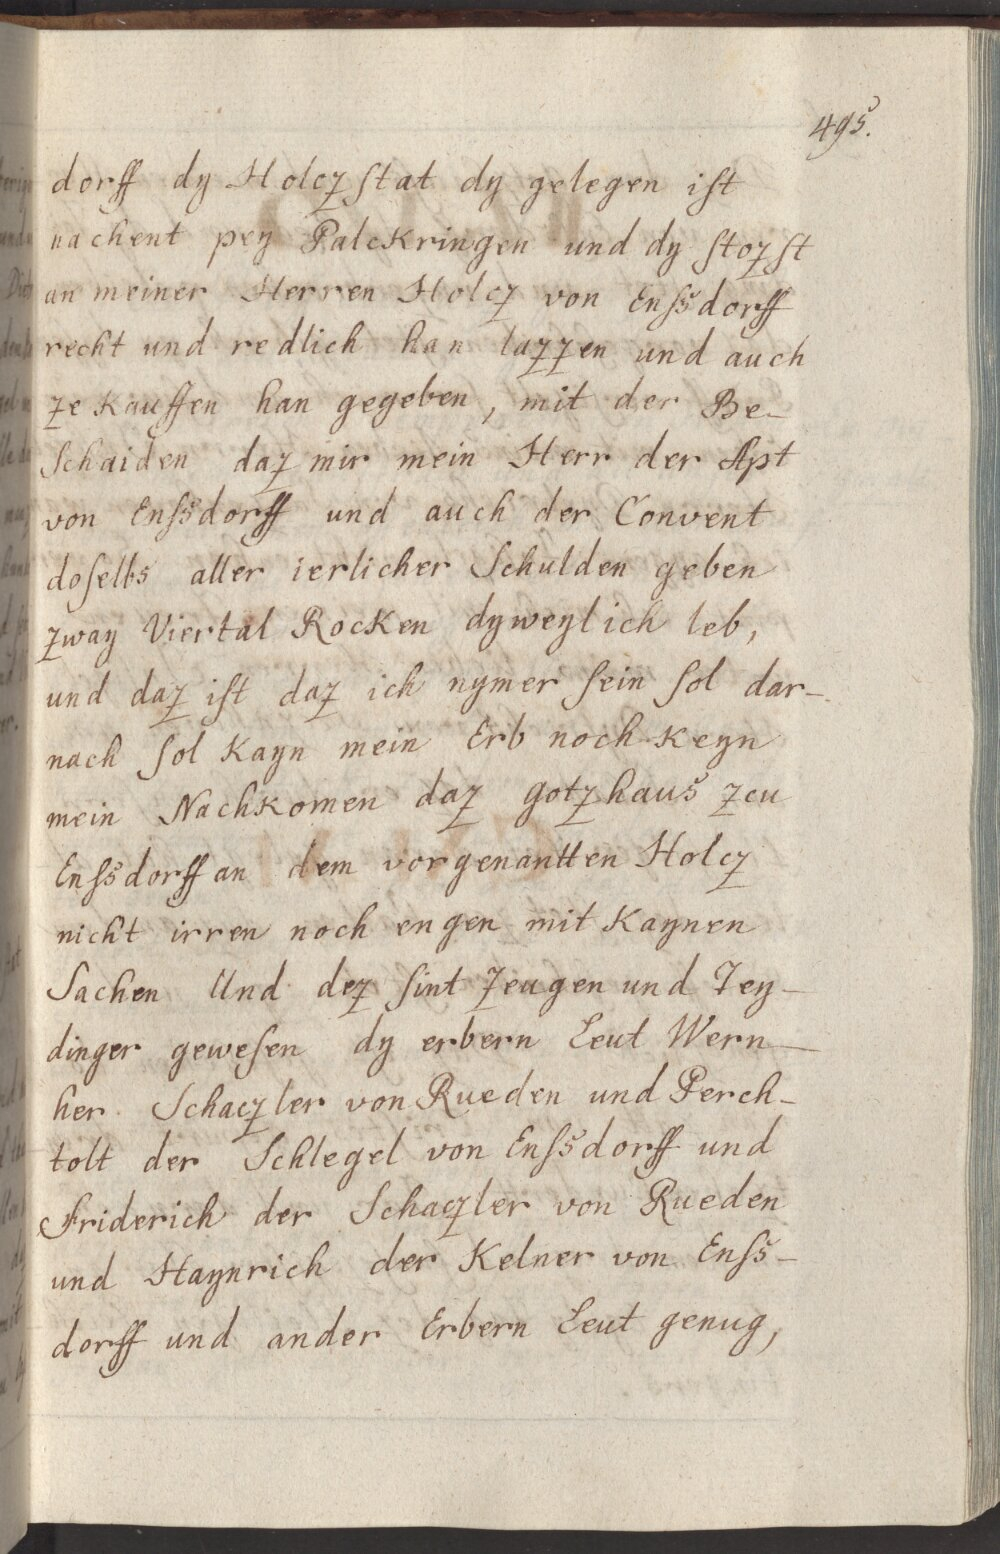 495.
dorff dy Holczstat dy gelegen ist
nachent pey Palckringen und dy stozst
an meiner Herren Holcz von Enssdorff
recht und redlich han lazzen und auch
ze kauffen han gegeben, mit der Be-
schaiden daz mir mein Herr der Apt
von Enssdorff und auch der Convent
doselbs aller ierlicher Schulden geben
zway Viertal Rocken dyweyl ich leb,
und daz ist daz ich nymer sein sol dar-
nach sol kayn mein Erb noch keyn
mein Nachkomen daz gotzhaus zcu
Enssdorff an dem vorgenantten Holcz
nicht irren noch engen mit kaynen
Sachen Und dez sint Zeugen und Tey-
dinger gewesen dy erbern Leut Wern-
her Schaczler von Rueden und Perch-
tolt der Schlegel von Enssdorff und
Friderich der Schaczler von Rueden
und Haynrich der Kelner von Enss-
dorff und ander Erbern Leut genug,